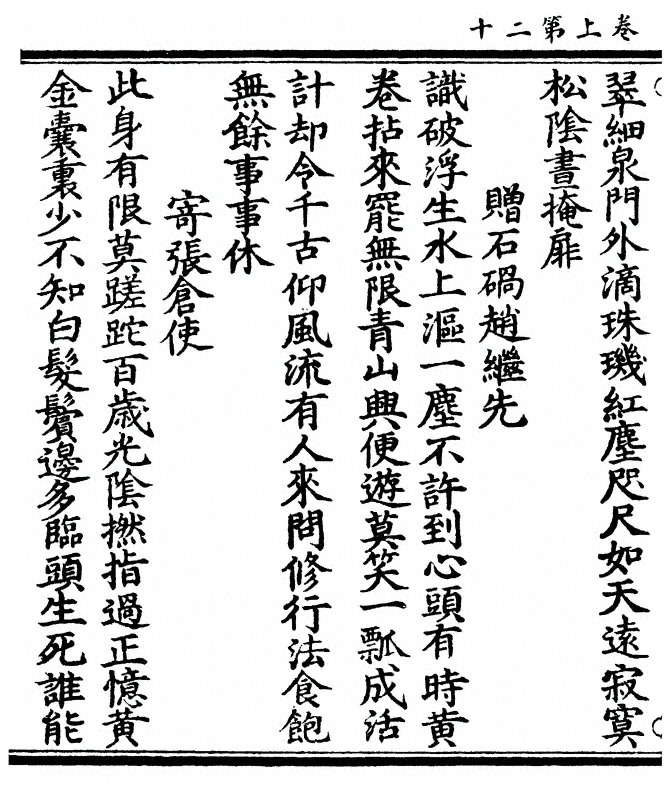 卷上第二十
翠細泉門外滴珠璣紅塵咫尺如天遠寂寞
松陰晝掩扉
贈石碢趙繼先
識破浮生水上漚一塵不許到心頭有時黄
卷拈來罷無限青山興便遊莫笑一瓢成活
計却令千古仰風流有人來問修行法食飽
無餘事事休
寄張倉使
此身有限莫蹉跎百歲光陰撚指過正憶黄
金囊裏少不知白髮鬢邊多臨頭生死誰能